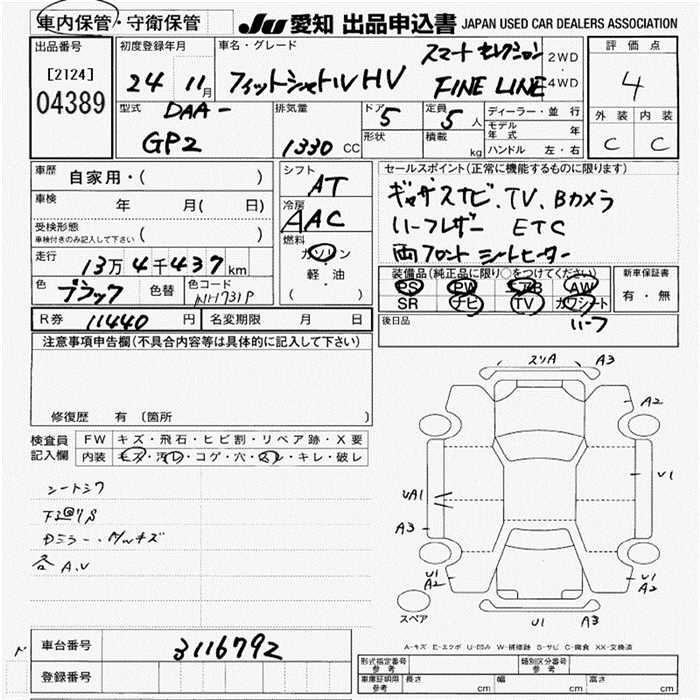 車内保管・守衛保管 JU 愛知 出品申込書 JAPAN USED CAR DEALERS ASSOCIATION
出品番号 初度登録年月 車名・グレード 評価点
[2124] 24 11月 フィットシャトルHV スマートセレクション 2WD 4
04389 FINE LINE 4WD
型式 DAA- 排気量 ドア 5 定員 5人 ディーラー・並行 外装 内装
GP2 1330 CC 形状 積載 kg モデル年式 年 C C
ハンドル 左・右
車歴 自家用・( ) シフト AT セールスポイント(正常に機能するものに限ります)
車検 年 月( 日) 冷房 AAC ギャザズナビ、TV、Bカメラ
受検形態 車検付きのみ記入して下さい ( ) 燃料 ハーフレザー ETC
走行 13万4千437km ガソリン 両フロントシートヒーター
軽・油
( )
色 ブラック 色替 色コード NH731P 装備品(純正品に限り○をつけてください) 新車保証書
PS PW エアB AW 有・無
SR ナビ TV カワシート
R券 11440円 名変期限 月 日 後日品 ハーフ
注意事項申告欄(不具合内容等は具体的に記入して下さい)
修復歴 有 (箇所
検査員記入欄 FW キズ・飛石・ヒビ割・リペア跡・X要
内装 キズ・汚レ・コゲ・穴・スレ・キレ・破レ
シートシワ
各A.U
スリA A3
A2
UA1 U1
A3
U1 A2 U1 A2
U1 A3
スペア
A-キズ E-エクボ U-凹み W-補修跡 S-サビ C-腐食 XX-交換済
車台番号 3116792
登録番号
形式指定番号 参考 類別区分番号 参考
車庫証明用 参考 長さ cm 幅 cm 高さ cm